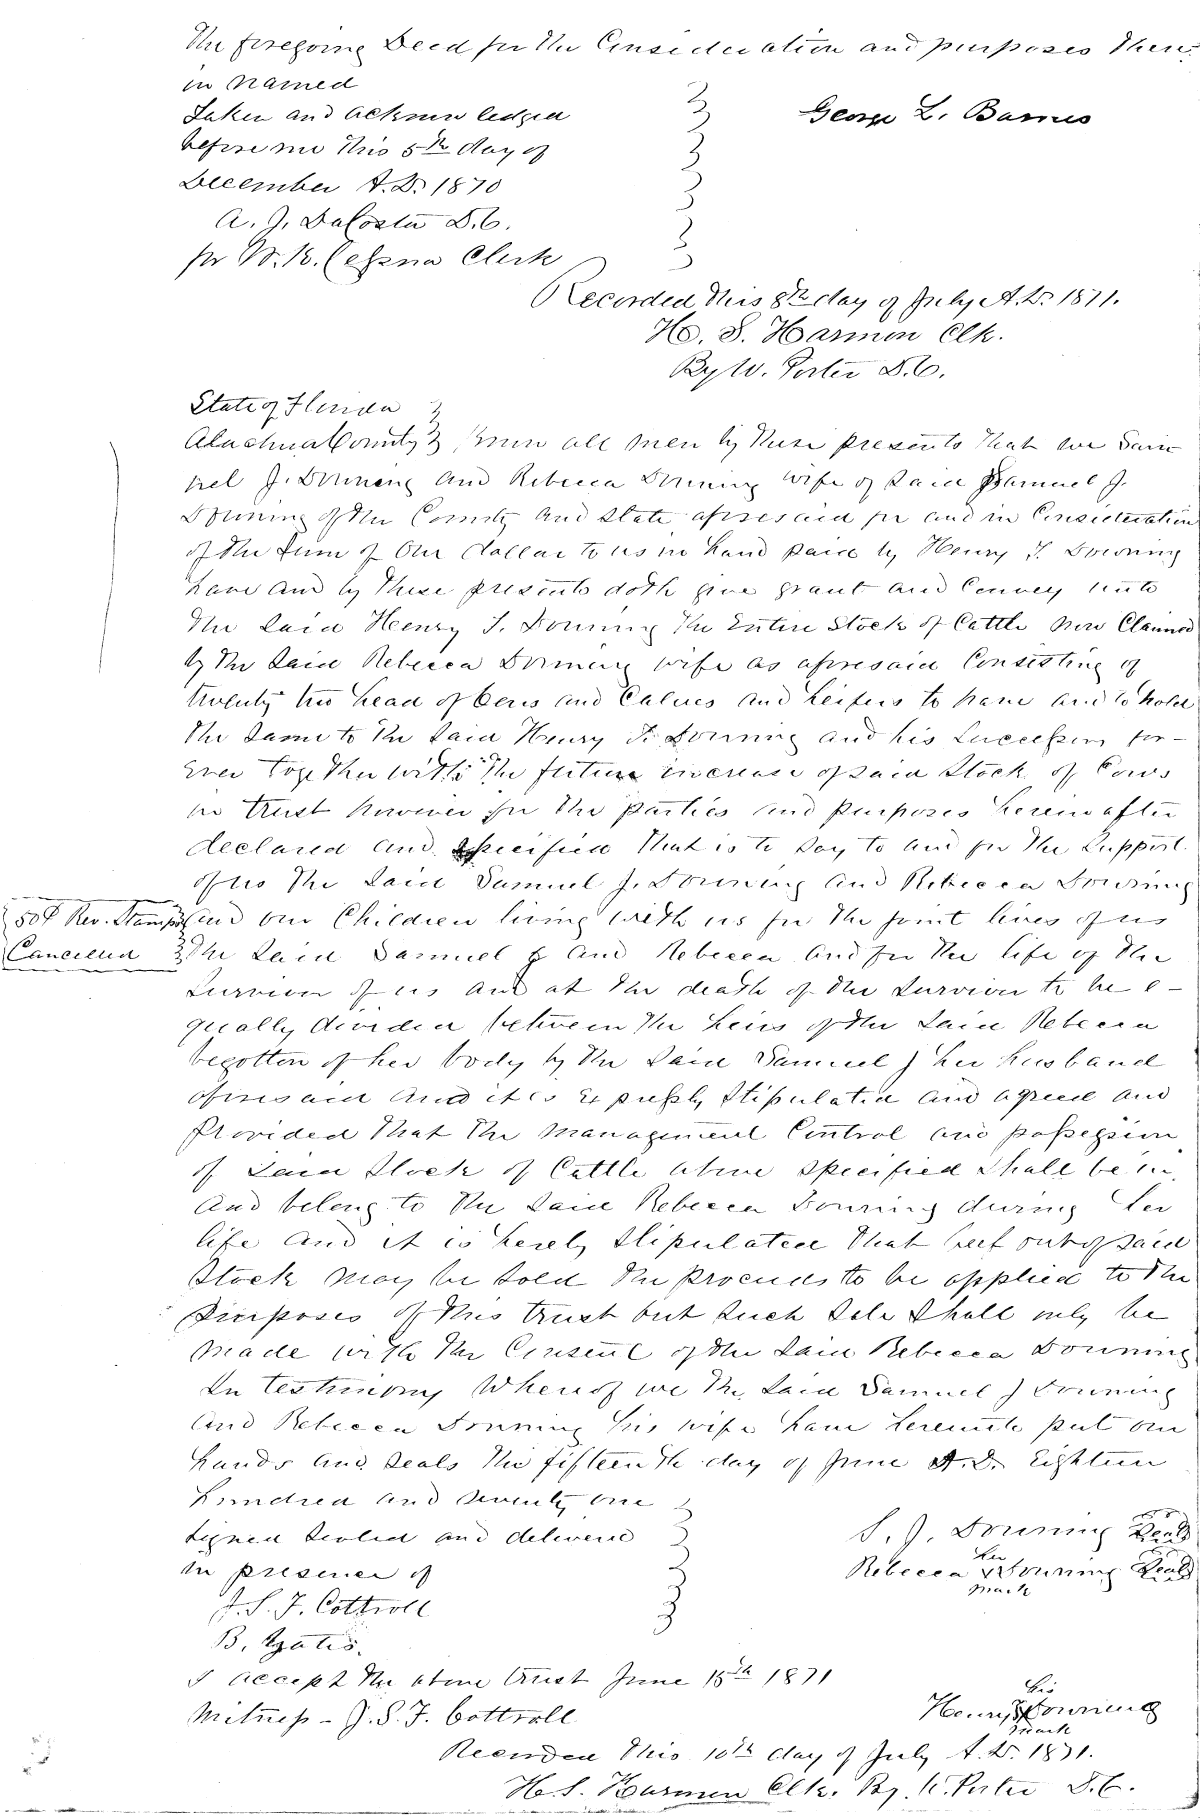 The foregoing Deed for the Consideration and purposes there-
in named
Taken and acknowledged
before me this 5th day of
December A.D. 1870
A. J. DaCosta D.C.
for W. K. Cessna Clerk
George L. Barnes
Recorded this 8th day of July A.D. 1871.
H. S. Harmon Clk.
By W. Porter D.C.
State of Florida
Alachua County Know all men by these presents that we Sam-
uel J. Downing and Rebecca Downing wife of said Samuel J.
Downing of the County and State aforesaid for and in Consideration
of the sum of One dollar to us in hand paid by Henry T. Downing
have and by these presents doth give grant and Convey unto
the said Henry T. Downing the Entire Stock of Cattle now Claimed
by the said Rebecca Downing wife as aforesaid Consisting of
twenty two head of Cows and Calves and heifers to have and to hold
the same to the said Henry T. Downing and his Successors for-
ever together with the future increase of said Stock of Cows
in trust however for the parties and purposes hereinafter
declared and specified that is to say to and for the Support
of us the said Samuel J. Downing and Rebecca Downing
50¢ Rev. Stamps
Cancelled
and our Children living with us for the joint lives of us
the said Samuel J and Rebecca and for the life of the
Survivor of us and at the death of the Survivor to be e-
qually divided between the heirs of the said Rebecca
begotten of her body by the said Samuel J her husband
aforesaid And it is Expressly stipulated and agreed and
Provided that the management Control and possession
of said Stock of Cattle above specified shall be in
and belong to the said Rebecca Downing during her
life and it is hereby stipulated that beef out of said
Stock may be sold the proceeds to be applied to the
purposes of this trust but such sale shall only be
made with the Consent of the said Rebecca Downing
In testimony Whereof we the said Samuel J Downing
and Rebecca Downing his wife have hereunto put our
hands and seals the fifteenth day of June A.D. Eighteen
hundred and seventy one
Signed Sealed and delivered
in presence of
J. S. F. Cottroll
B.
S. J. Downing Seal
her
Rebecca x Downing Seal
mark
I accept the above trust June 15th 1871
Witness - J. S. F. Cottroll
his
Henry x Downing
mark
Recorded this 10th day of July A.D. 1871.
H. S. Harmon Clk. By W. Porter D.C.